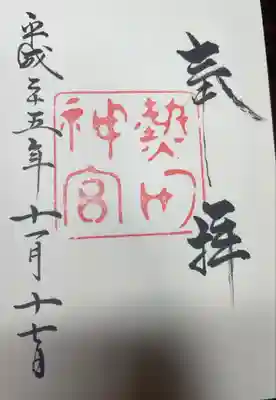 奉拝
熱田神宮
平成二十五年十一月十七日